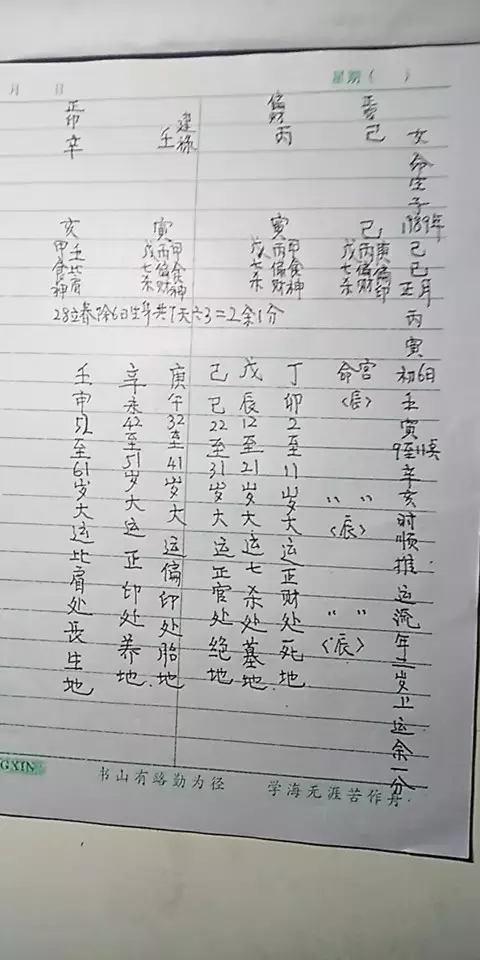 月 日 星期( )
女命生于1989年己巳正月丙寅初6日壬寅9至11点辛亥时顺推运流年二岁上运余一分
己
巳
丙庚
戊七杀 丙偏财 庚偏印
偏财
丙
寅
戊七杀 丙偏财 甲食神
建禄
壬
寅
戊七杀 丙偏财 甲食神
正印
辛
亥
甲食神 壬比肩
28立春除6日生年共7天六3=2余1分
命宫〈辰〉
〃 〃〈辰〉
〃 〃〈辰〉
丁卯2至11岁大运正财处死地
戊辰12至21岁大运七杀处墓地
己巳22至31岁大运正官处绝地
庚午32至41岁大运偏印处胎地
辛未42至51岁大运正印处养地
壬申52至61岁大运比肩处长生地
GXIN 书山有路勤为径 学海无涯苦作舟